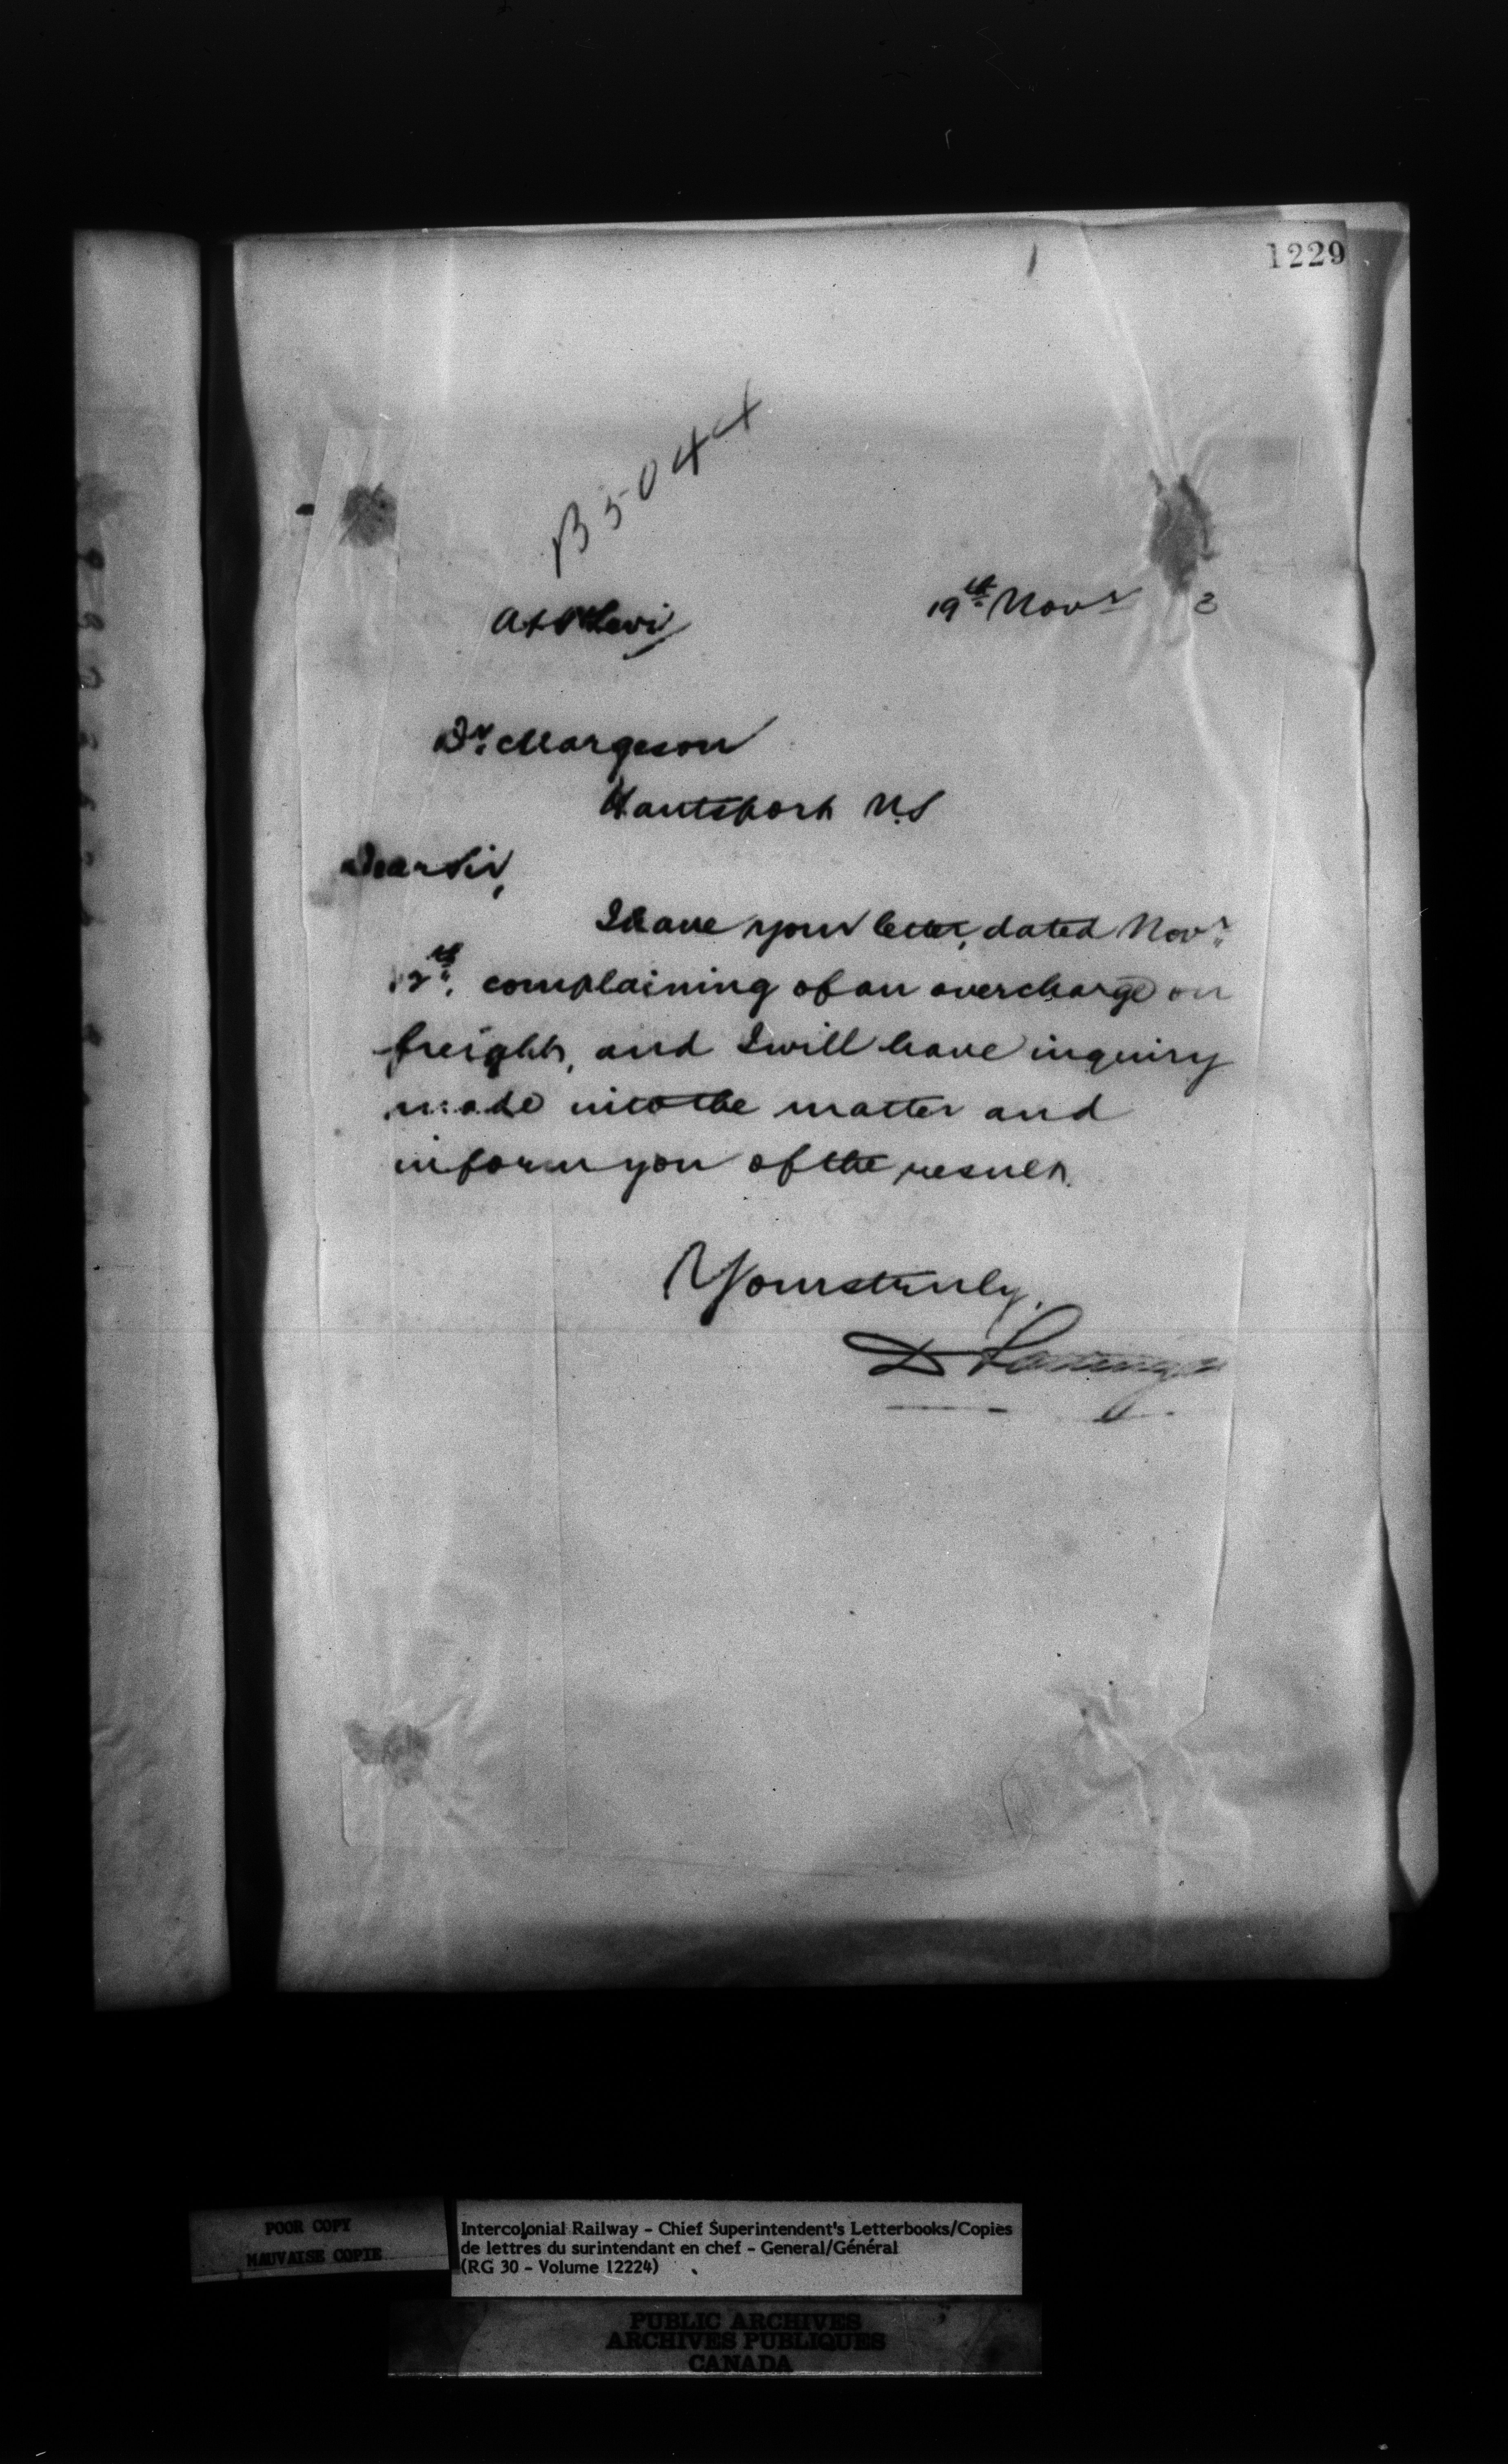 1229
B5044
At Levi
19th Novr 3
Dr. Margeson
Hantsport N.S
Dear Sir,
I have your letter, dated Novr.
12th. complaining of an overcharge on
freight, and I will have inquiry
made into the matter and
inform you of the result.
Yours truly,
D Pottinger
POOR COPY
MAUVAISE COPIE
Intercolonial Railway - Chief Superintendent's Letterbooks/Copies
de lettres du surintendant en chef - General/Général
(RG 30 - Volume 12224)
PUBLIC ARCHIVES
ARCHIVES PUBLIQUES
CANADA